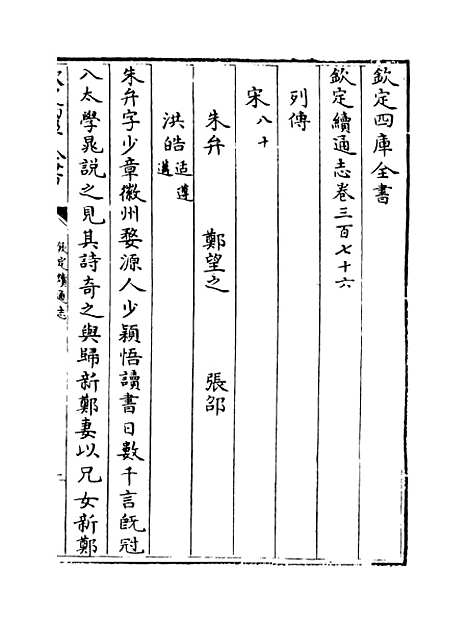 欽定四庫全書
欽定續通志卷三百七十六
列傳
宋八十
朱弁 鄭望之 張邵
洪皓适遵邁
朱弁字少章徽州婺源人少穎悟讀書日數千言既冠
入太學晁說之見其詩奇之與歸新鄭妻以兄女新鄭
欽定續通志